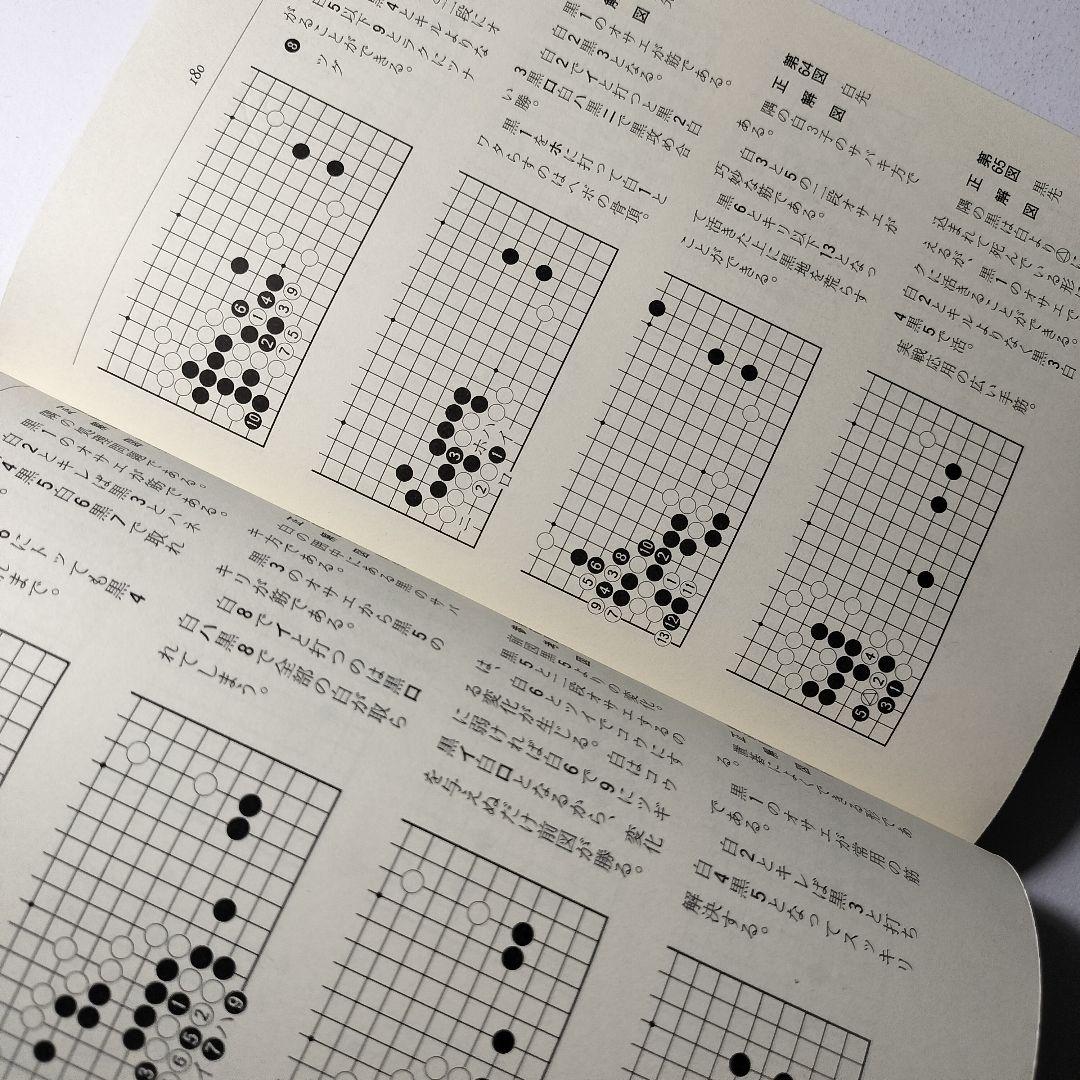 第65図 黒先
正解図
隅の黒は白より△に
込まれて死んでいる形に
えるが、黒1のオサエで
クに活きることができる。
白2とキルよりなく黒3白
4黒5で活。
実戦応用の広い手筋。
第64図 白先
正解図
隅の白3子のサバキ方で
ある。
白3と5の二段オサエが
巧妙な筋である。
黒6とキリ以下13となっ
て活きた上に黒地を荒らす
ことができる。
図
黒1のオサエが筋である。
白2黒3となる。
白2でイと打つと黒2白
3黒ロ白ハ黒ニで黒攻め合
い勝。
黒1をホに打って白1と
ワタらすのはヘボの骨頂。
二段にオ
黒4とキルような
白5以下9とラクにツナ
がることができる。
❽ ツグ
180
正解図
置碁によくできる形であ
る。
黒1のオサエが常用の筋
である。
白2とキレば黒3と打ち
白4黒5となってスッキリ
解決する。
前図黒5よりの変化。
黒5と二段オサエするの
は、白6とツイでコウにす
る変化が生じる。白はコウ
に弱ければ白6で9にツギ
黒イ白ロとなるから、変化
を与えぬだけ前図が勝る。
正解図
白の層中にある黒のサバ
キ方である。
黒3のオサエから黒5の
キリが筋である。
白8でイと打つのは黒ロ
白ハ黒8で全部の白が取ら
れてしまう。
正解図
黒1のオサエが筋である。
白2とキレば黒3とハネ
4黒5白6黒7で取れ
にトッても黒4
れまで。